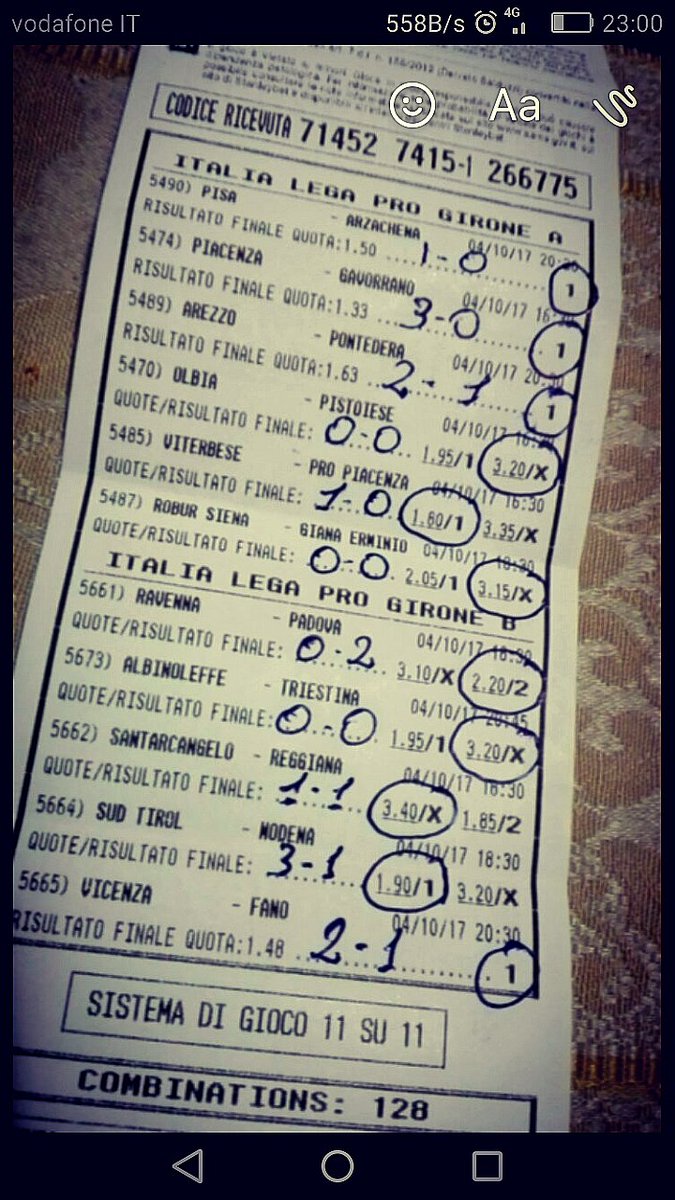 vodafone IT 558B/s 4G 23:00
Aa
CODICE RICEVUTA 71452 7415-1 266775
ITALIA LEGA PRO GIRONE A
5490) PISA - ARZACHENA 04/10/17
RISULTATO FINALE QUOTA:1.50 ... 1-0 ... 1
5474) PIACENZA - GAVORRANO 04/10/17
RISULTATO FINALE QUOTA:1.33 ... 3-0 ... 1
5489) AREZZO - PONTEDERA 04/10/17
RISULTATO FINALE QUOTA:1.63 ... 2-1 ... 1
5470) OLBIA - PISTOIESE 04/10/17
QUOTE/RISULTATO FINALE: 0-0 1.95/1 3.20/X
5485) VITERBESE - PRO PIACENZA 04/10/17 16:30
QUOTE/RISULTATO FINALE: 1-0 1.80/1 3.35/X
5487) ROBUR SIENA - GIANA ERMINIO 04/10/17
QUOTE/RISULTATO FINALE: 0-0 2.05/1 3.15/X
ITALIA LEGA PRO GIRONE B
5661) RAVENNA - PADOVA 04/10/17
QUOTE/RISULTATO FINALE: 0-2 3.10/X 2.20/2
5673) ALBINOLEFFE - TRIESTINA 04/10/17 20:45
QUOTE/RISULTATO FINALE: 0-0 1.95/1 3.20/X
5662) SANTARCANGELO - REGGIANA 04/10/17
QUOTE/RISULTATO FINALE: 1-1 3.40/X 1.85/2
5664) SUD TIROL - MODENA 04/10/17 18:30
QUOTE/RISULTATO FINALE: 3-1 1.90/1 3.20/X
5665) VICENZA - FANO 04/10/17 20:30
RISULTATO FINALE QUOTA:1.48 ... 2-1 ... 1
SISTEMA DI GIOCO 11 SU 11
COMBINATIONS: 128